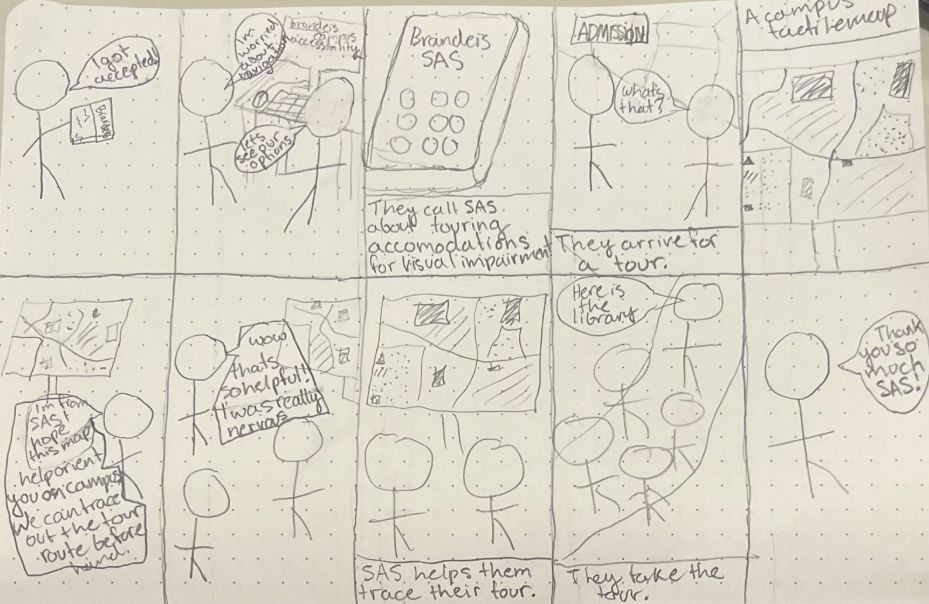 I got
accepted!
I'm
worried
about
navigation
Brandeis
campus
accessibility
lets
see our
options
Brandeis
SAS
They call SAS
about touring
accomodations
for visual impairment
ADMISSION
what's
that?
They arrive for
a tour.
A campus
tactile map
I'm from
SAS I
hope
this map
help orient
you on campus
We can trace
out the tour
route before
hand.
wow
thats
so helpful!
I was really
nervous
SAS helps them
trace their tour.
Here is
the
library
They take the
tour.
Thank
you so
much
SAS!